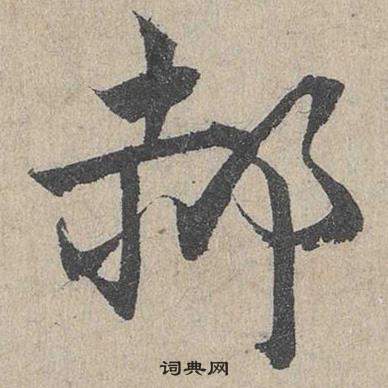 郝
词典网